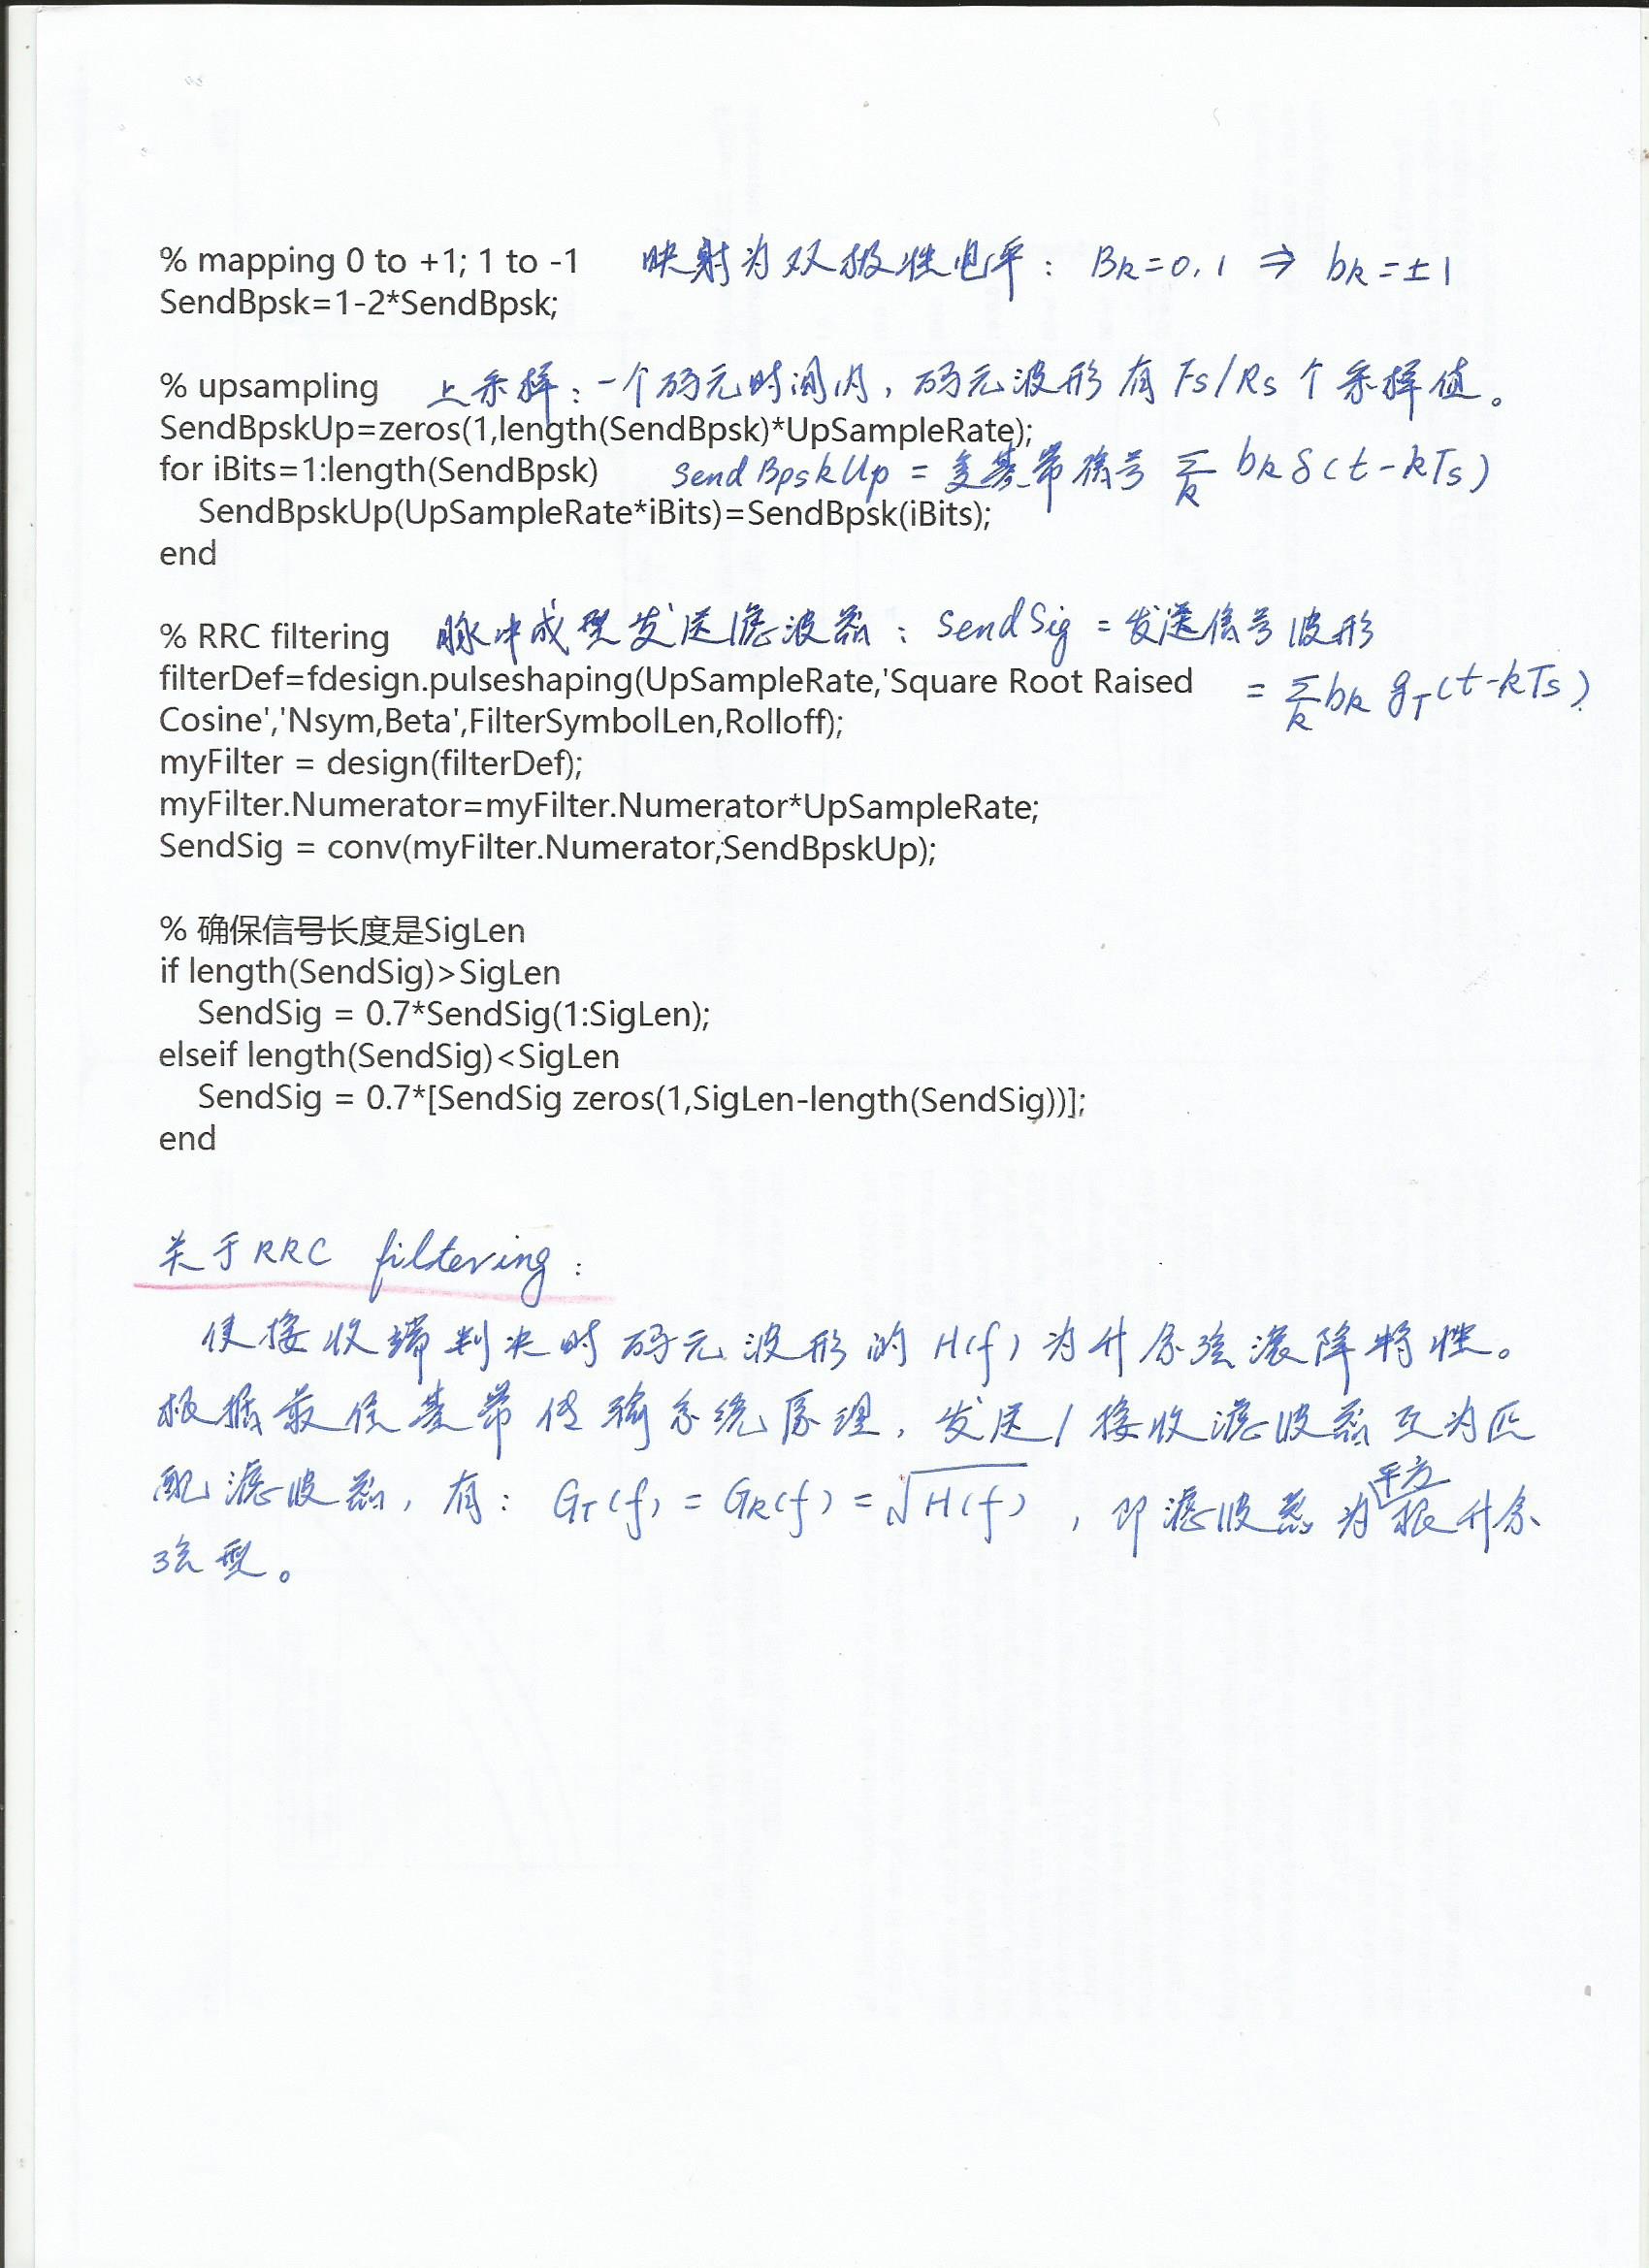 % mapping 0 to +1; 1 to -1 映射为双极性电平: Bk=0,1 ⇒ bk=±1
SendBpsk=1-2*SendBpsk;
% upsampling 上采样:一个码元时间内,码元波形有Fs/Rs个采样值。
SendBpskUp=zeros(1,length(SendBpsk)*UpSampleRate);
for iBits=1:length(SendBpsk) SendBpskUp = 复基带信号 Σk bkδ(t-kTs)
SendBpskUp(UpSampleRate*iBits)=SendBpsk(iBits);
end
% RRC filtering 脉冲成型发送滤波器: SendSig = 发送信号波形
filterDef=fdesign.pulseshaping(UpSampleRate,'Square Root Raised = Σk bk gT(t-kTs)
Cosine','Nsym,Beta',FilterSymbolLen,Rolloff);
myFilter = design(filterDef);
myFilter.Numerator=myFilter.Numerator*UpSampleRate;
SendSig = conv(myFilter.Numerator,SendBpskUp);
% 确保信号长度是SigLen
if length(SendSig)>SigLen
SendSig = 0.7*SendSig(1:SigLen);
elseif length(SendSig)<SigLen
SendSig = 0.7*[SendSig zeros(1,SigLen-length(SendSig))];
end
关于RRC filtering:
使接收端判决时码元波形的H(f)为升余弦滚降特性。
根据最佳基带传输系统原理,发送/接收滤波器互为匹
配滤波器,有: GT(f) = GR(f) = √H(f) ,即滤波器为平方根升余
弦型。